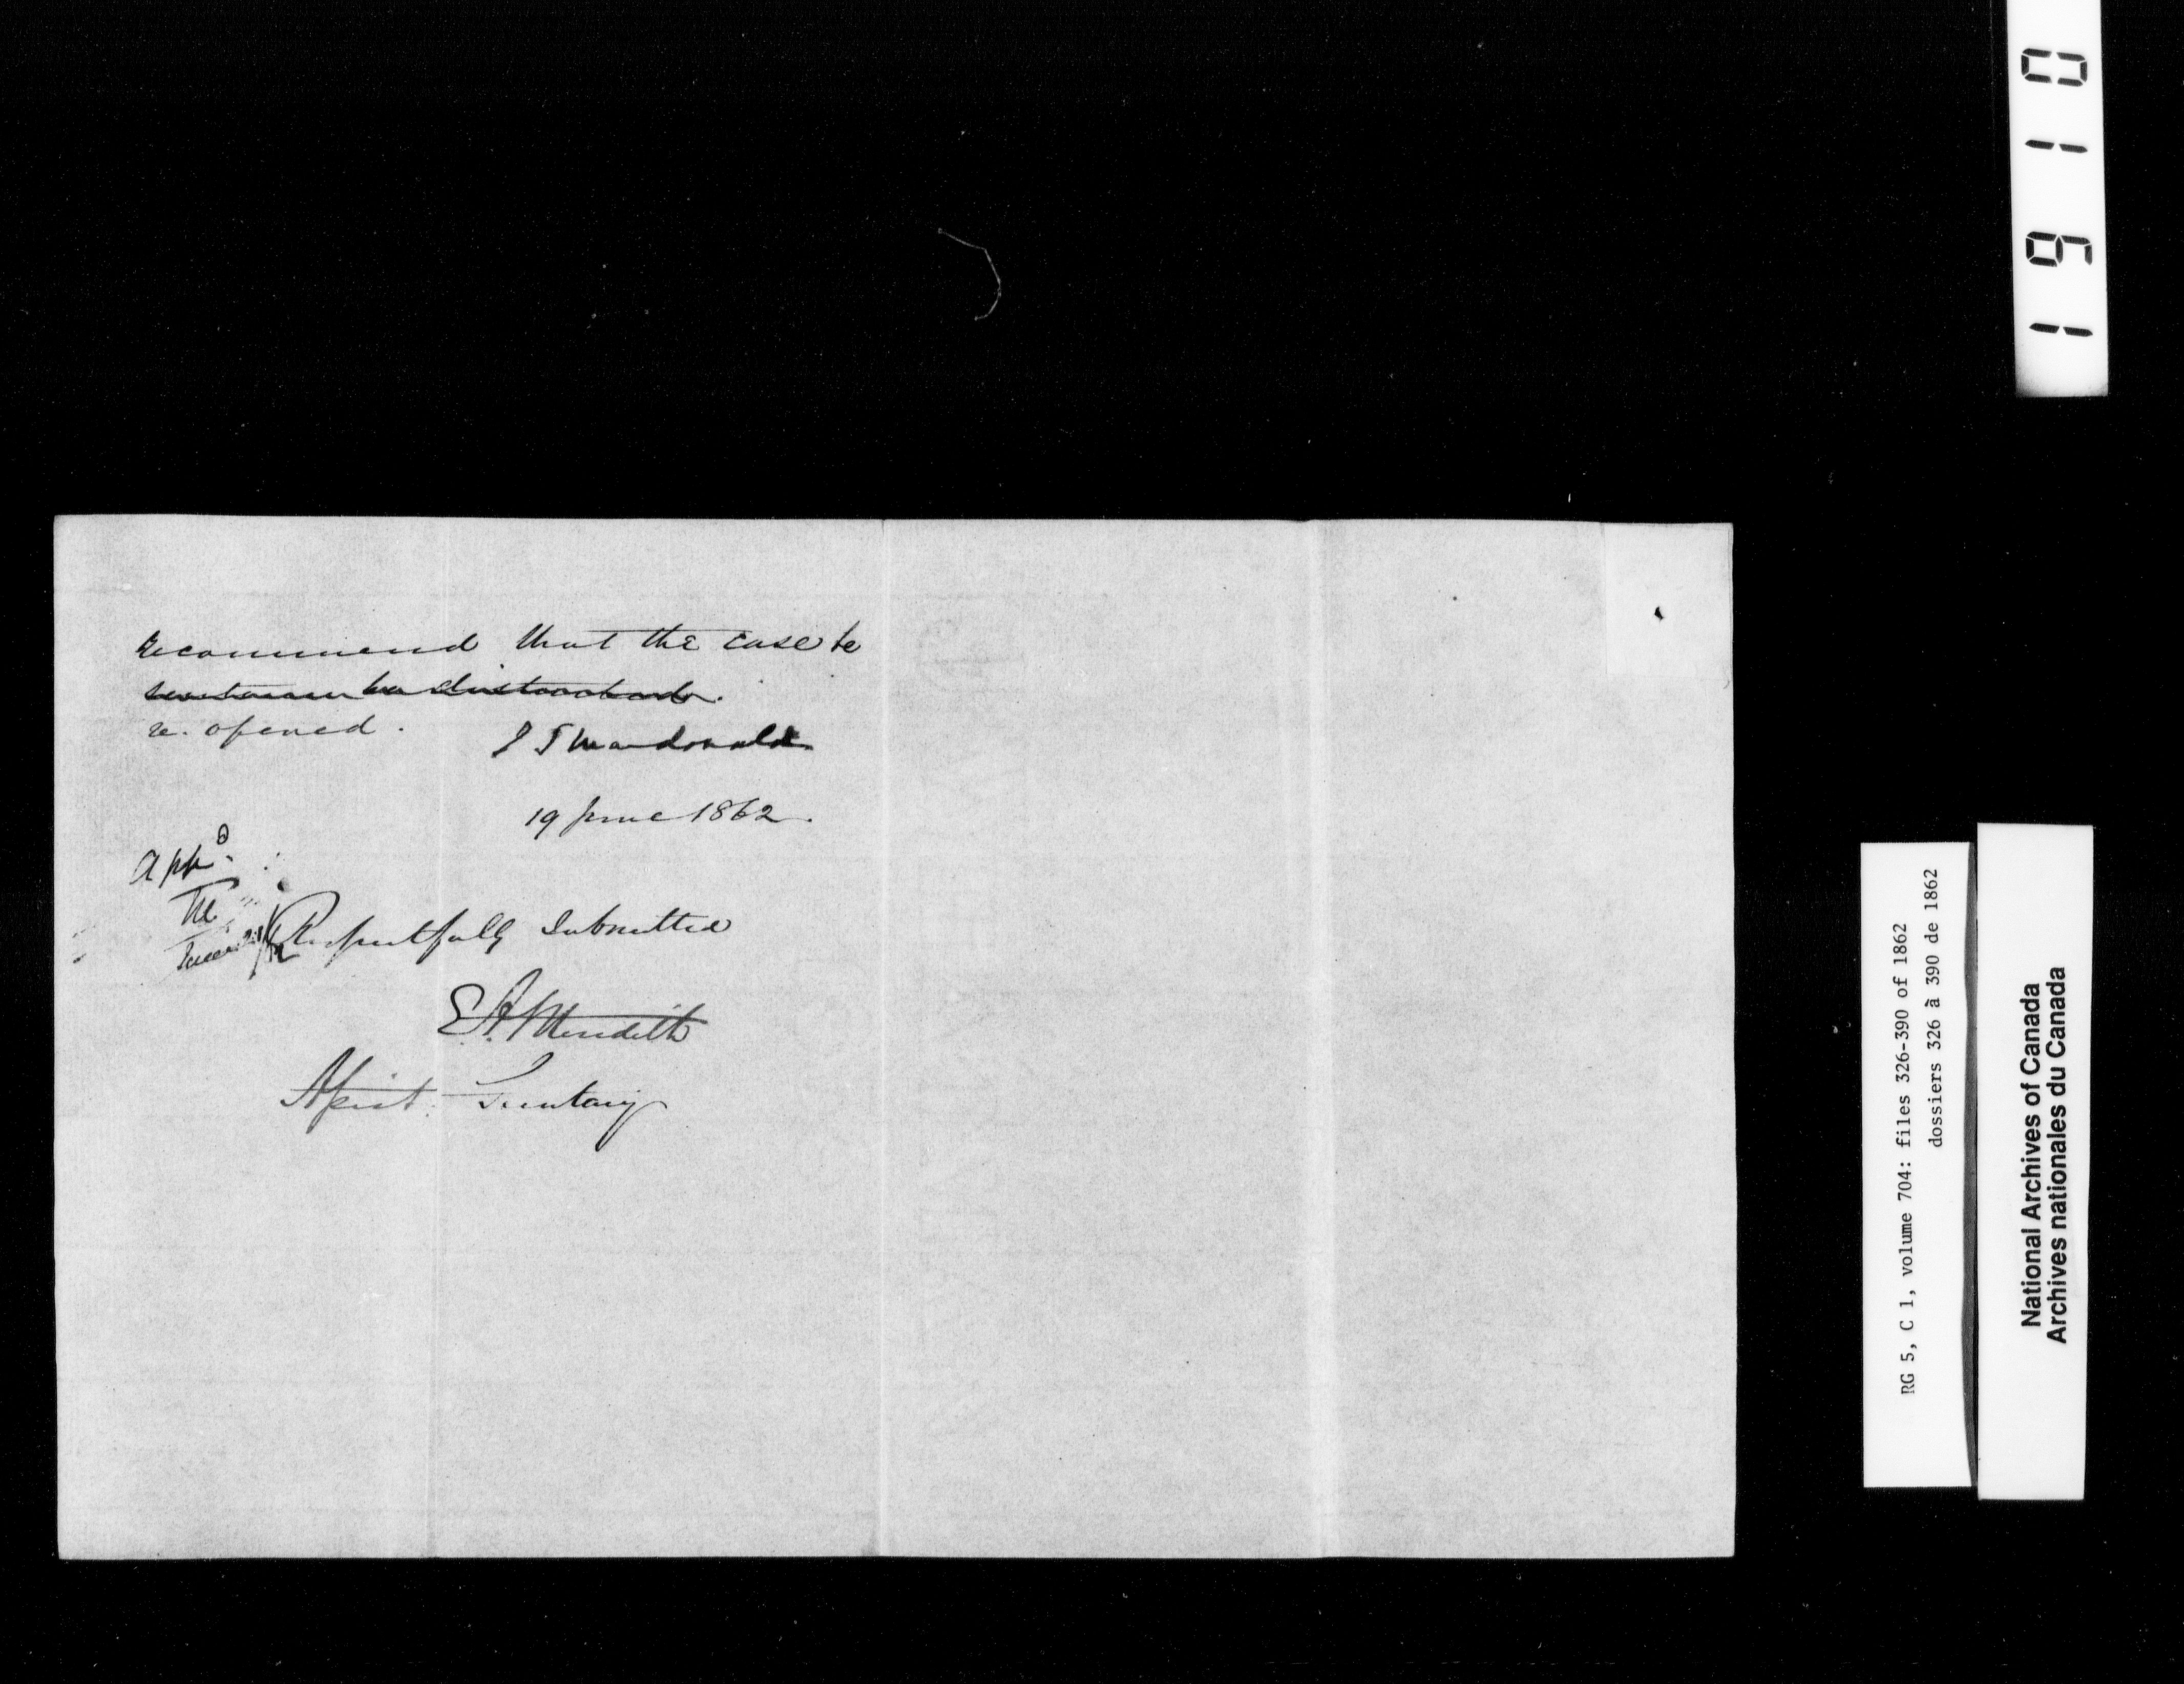 recommend that the case be
re. opened.
J S Macdonald
19 June 1862.
appd.
Respectfully Submitted
E. A. Meredith
Assist. Secretary
1910
RG 5, C 1, volume 704: files 326-390 of 1862
dossiers 326 à 390 de 1862
National Archives of Canada
Archives nationales du Canada